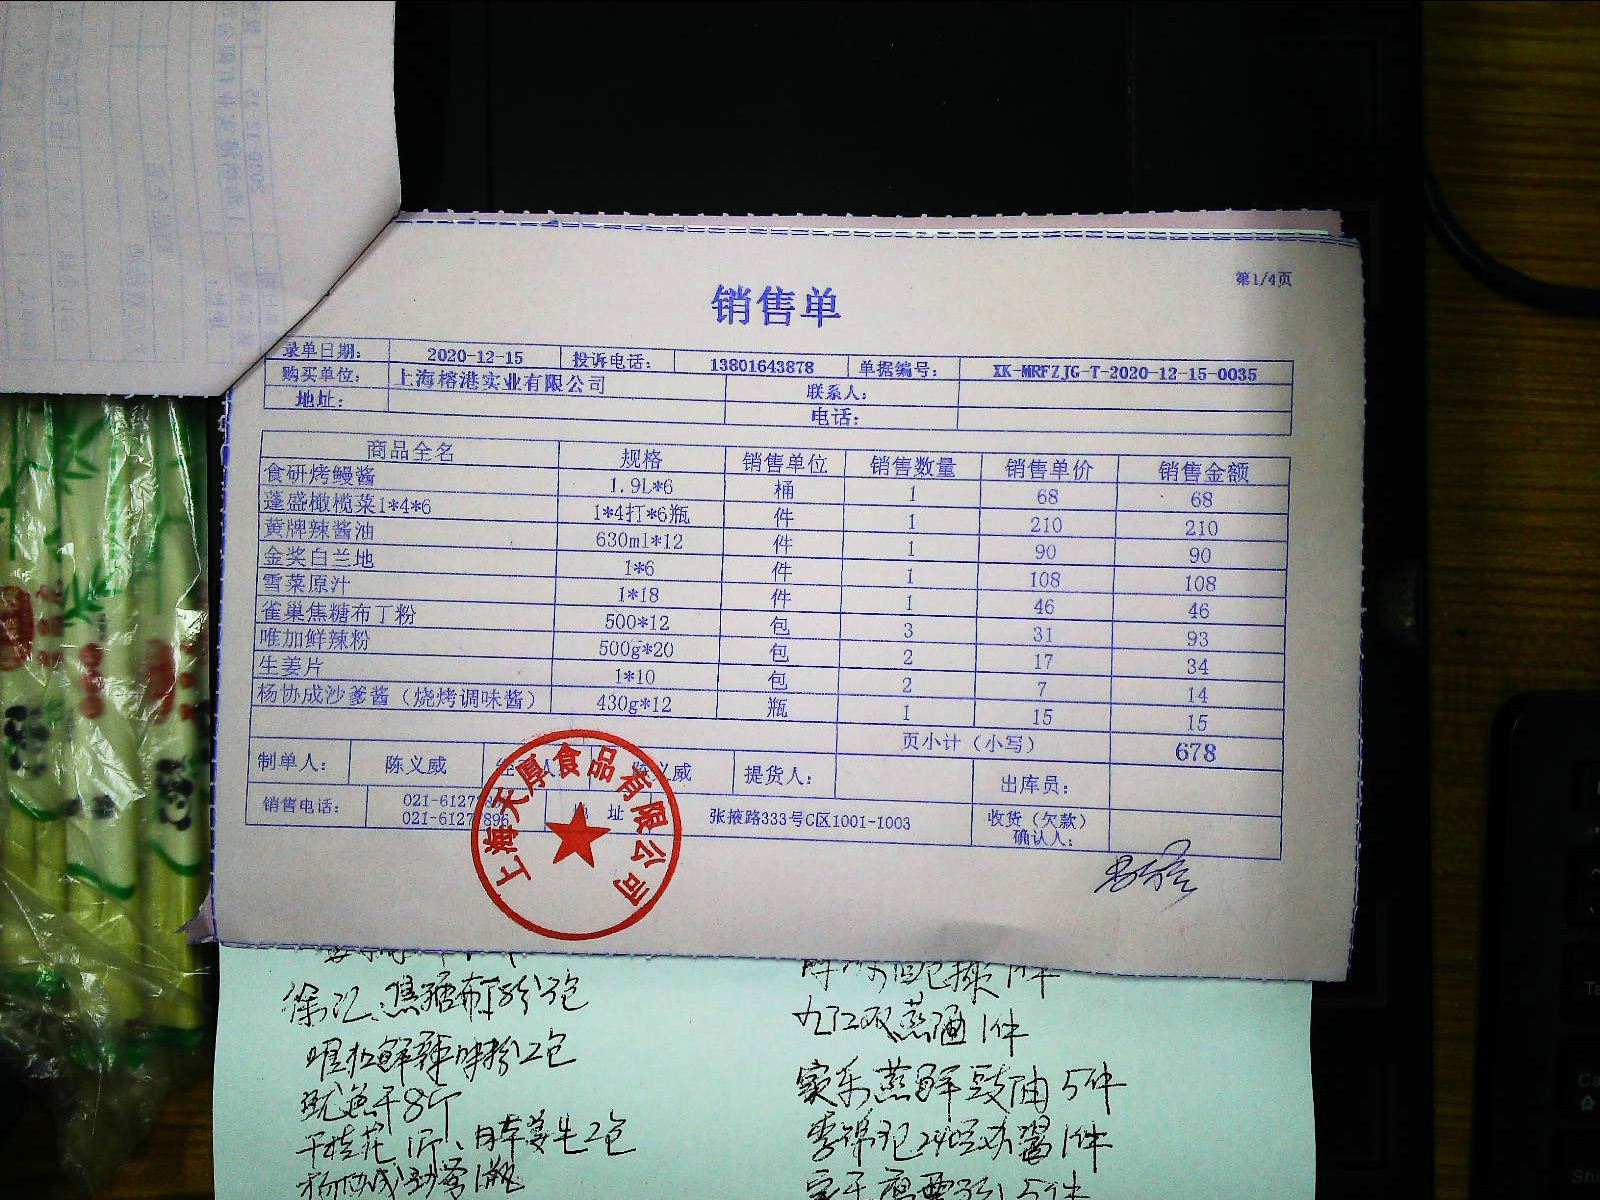 第1/4页
销售单
录单日期: 2020-12-15 投诉电话: 13801643878 单据编号: XK-MRFZJG-T-2020-12-15-0035
购买单位: 上海榕港实业有限公司 联系人:
地址: 电话:
商品全名 规格 销售单位 销售数量 销售单价 销售金额
食研烤鳗酱 1.9L*6 桶 1 68 68
蓬盛橄榄菜1*4*6 1*4打*6瓶 件 1 210 210
黄牌辣酱油 630ml*12 件 1 90 90
金奖白兰地 1*6 件 1 108 108
雪菜原汁 1*18 件 1 46 46
雀巢焦糖布丁粉 500*12 包 3 31 93
唯加鲜辣粉 500g*20 包 2 17 34
生姜片 1*10 包 2 7 14
杨协成沙爹酱（烧烤调味酱） 430g*12 瓶 1 15 15
页小计（小写） 678
制单人: 陈义威 义威 提货人: 出库员:
销售电话: 021-6127 址 张掖路333号C区1001-1003 收货（欠款）
021-6127 896 确认人:
上海天厚食品有限公司
徐汇、焦糖布丁粉3包
唯加鲜辣味粉2包
鱿鱼干8斤
干桂花1斤、
杨协成沙爹1瓶
九江双蒸酒1件
家乐蒸鲜豉油5件
1件
5件